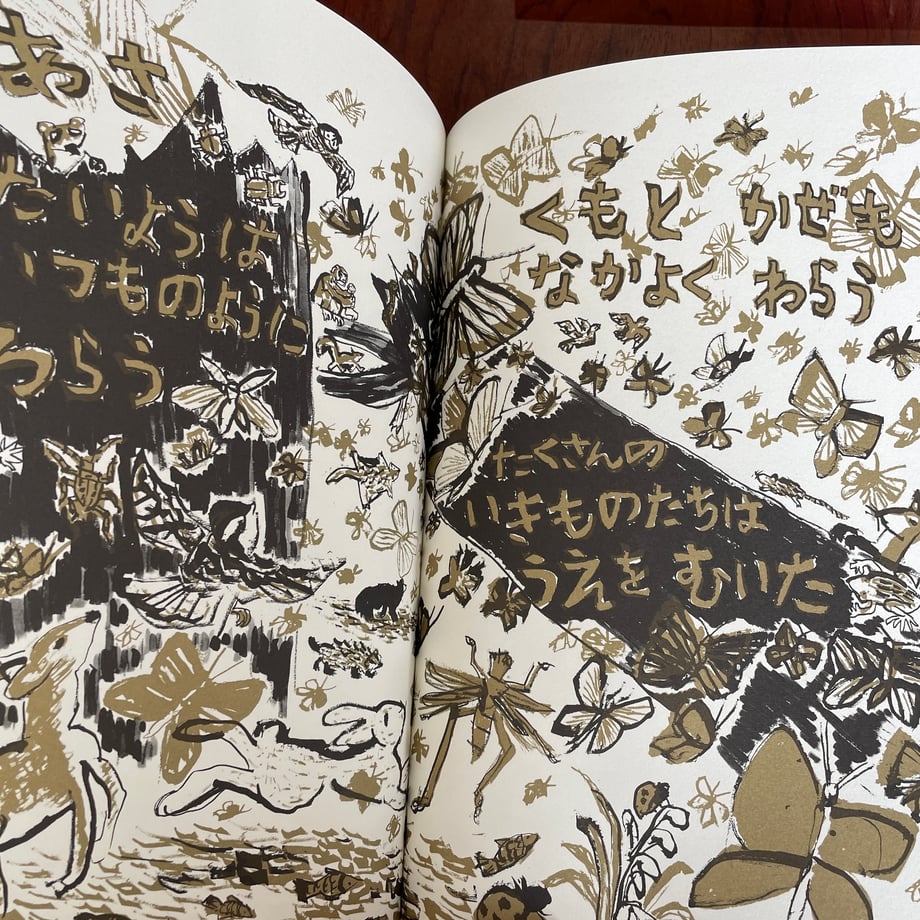 あさ
たいようは
いつものように
わらう
くもと かぜも
なかよく わらう
たくさんの
いきものたちは
うえを むいた